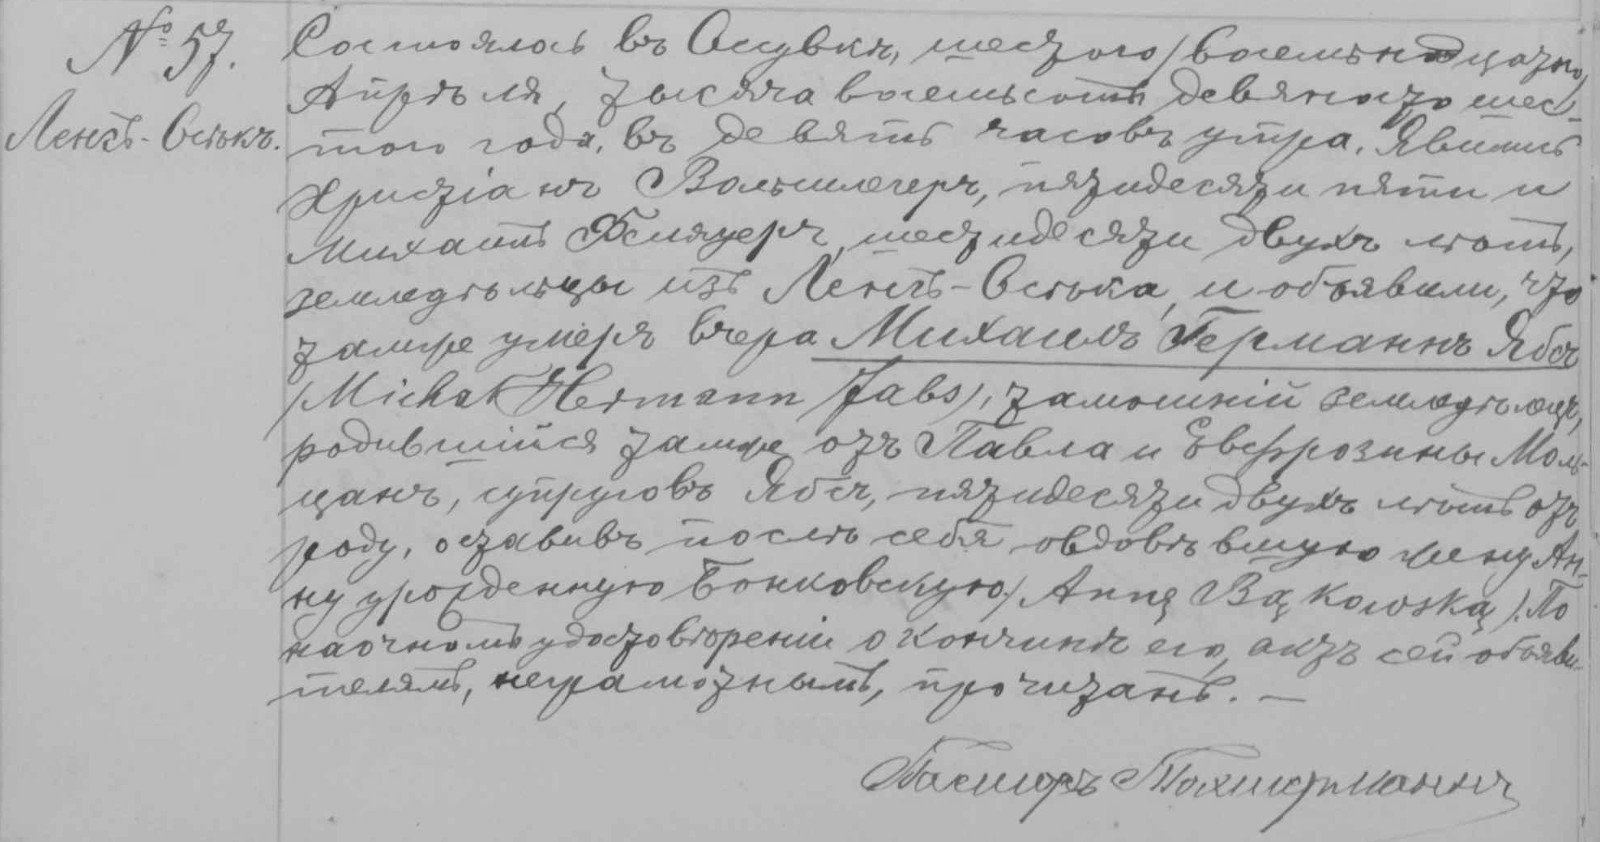 № 57.
Ленгъ-Оськъ.
Состоялось въ Осувкѣ, шестого/восемнадцатого
Апрѣля, тысяча восемьсотъ девяносто шес-
того года, въ девять часовъ утра. Явились
Христіанъ Вольшлегеръ, пятидесяти пяти и
Михаилъ шестидесяти двухъ лѣтъ,
земледѣльцы изъ Ленгъ-Оська, и объявили, что
тамже умеръ вчера Михаилъ Германнъ Ябсъ
/Michał Hermann Jabs/, тамошній земледѣлецъ,
родившійся тамже отъ Павла и Евфрозины Моль-
цанъ, супруговъ Ябсъ, пятидесяти двухъ лѣтъ отъ
роду, оставивъ послѣ себя овдовѣвшую жену Ан-
ну урожденную Бонковскую /Annę Bąkowską/. По
наочномъ удостовѣреніи о кончинѣ его, актъ сей объяви-
телямъ, неграмотнымъ, прочитанъ. —
Пасторъ